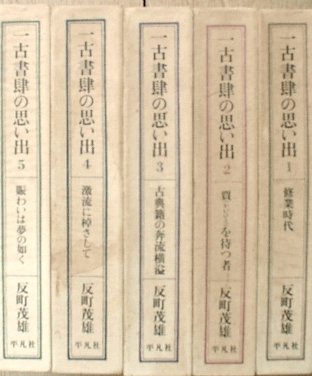 一古書肆の思い出 1 修業時代 反町茂雄 平凡社
一古書肆の思い出 2 賈を待つ者 反町茂雄 平凡社
一古書肆の思い出 3 古典籍の奔流横溢 反町茂雄 平凡社
一古書肆の思い出 4 激流に棹さして 反町茂雄 平凡社
一古書肆の思い出 5 賑わいは夢の如く 反町茂雄 平凡社